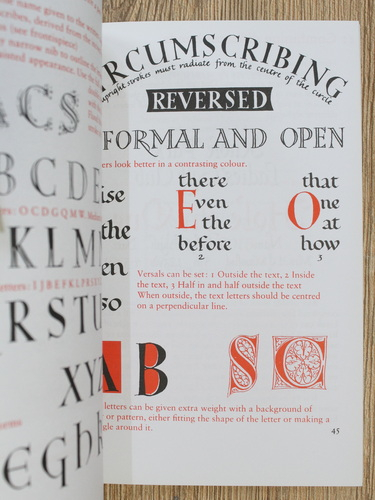 name given to the written
scribes, derived from the
(see frontispiece)
narrow nib to outline the
appearance. Use the
ACS
BCDE
OCDGQMW.
KLM
etters: IJBEFKLPRS
RSTU
XYZ
eGhk
RCUMSCRIBING
upright strokes must radiate from the centre of the circle
REVERSED
FORMAL AND OPEN
ers look better in a contrasting colour.
ise
the
en
so
there
Even
the
before
2
that
One
at
how
3
Versals can be set: 1 Outside the text, 2 Inside
the text, 3 Half in and half outside the text
When outside, the text letters should be centred
on a perpendicular line.
A B
S C
letters can be given extra weight with a background of
or pattern, either fitting the shape of the letter or making a
gle around it.
45